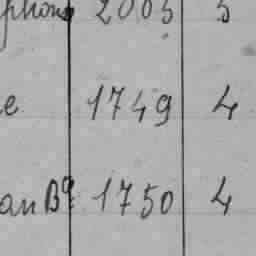 phons 2005 5
e 1749 4
an Bq 1750 4